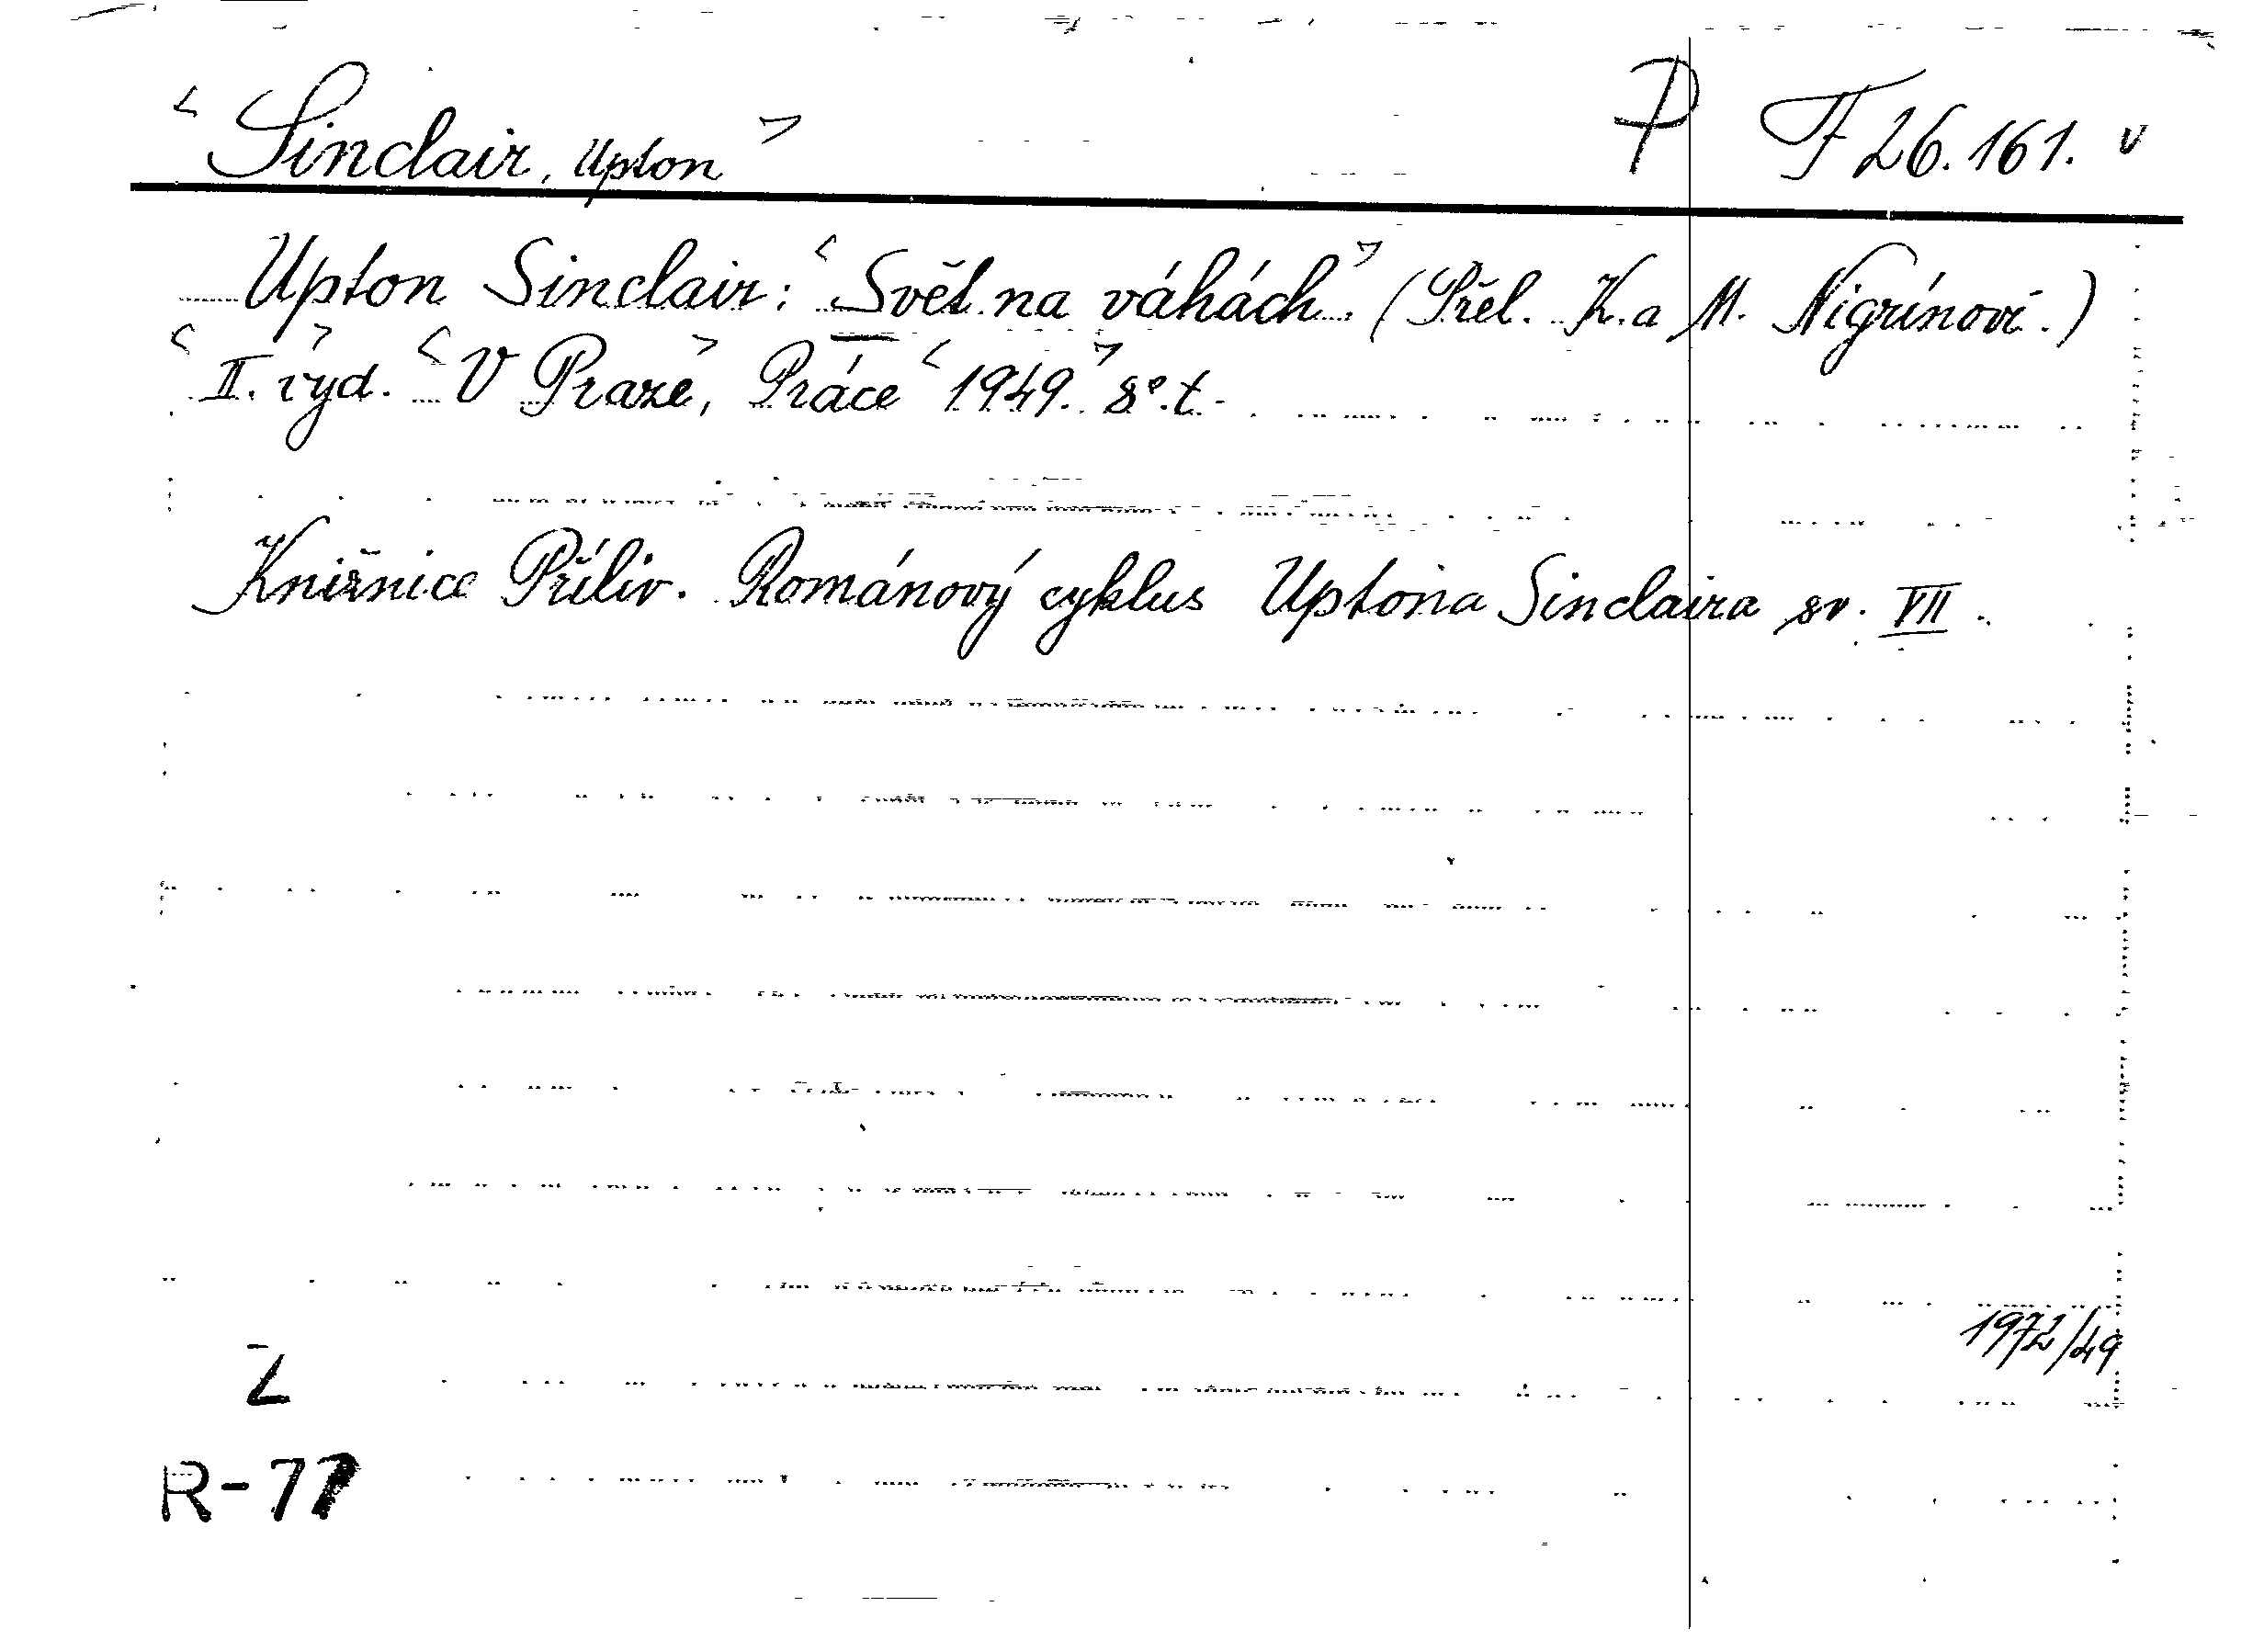 < Sinclair, Upton > P F 26.161. v
Upton Sinclair: < Svět na váhách. > (Přel. K. a M. Nigrínoví.)
< II. vyd. > < V Praze >, Práce < 1949. > 8°. t.
Knižnice Příliv. Románový cyklus Uptona Sinclaira sv. VII.
1972/49
Z
R-77